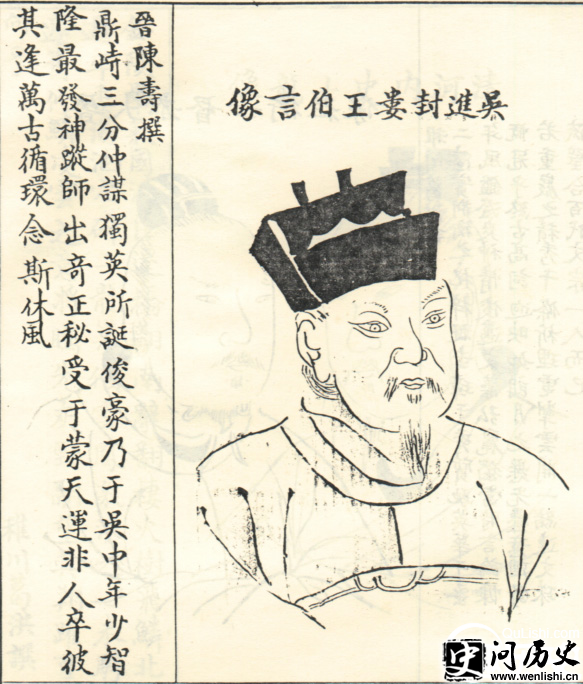 吳進封婁王伯言像
晉陳壽撰
鼎峙三分仲謀獨英所誕俊豪乃于吳中年少智
隆最發神蹤師出奇正秘受于蒙天運非人卒彼
其逢萬古循環念斯休風
问历史
www.wenlishi.cn